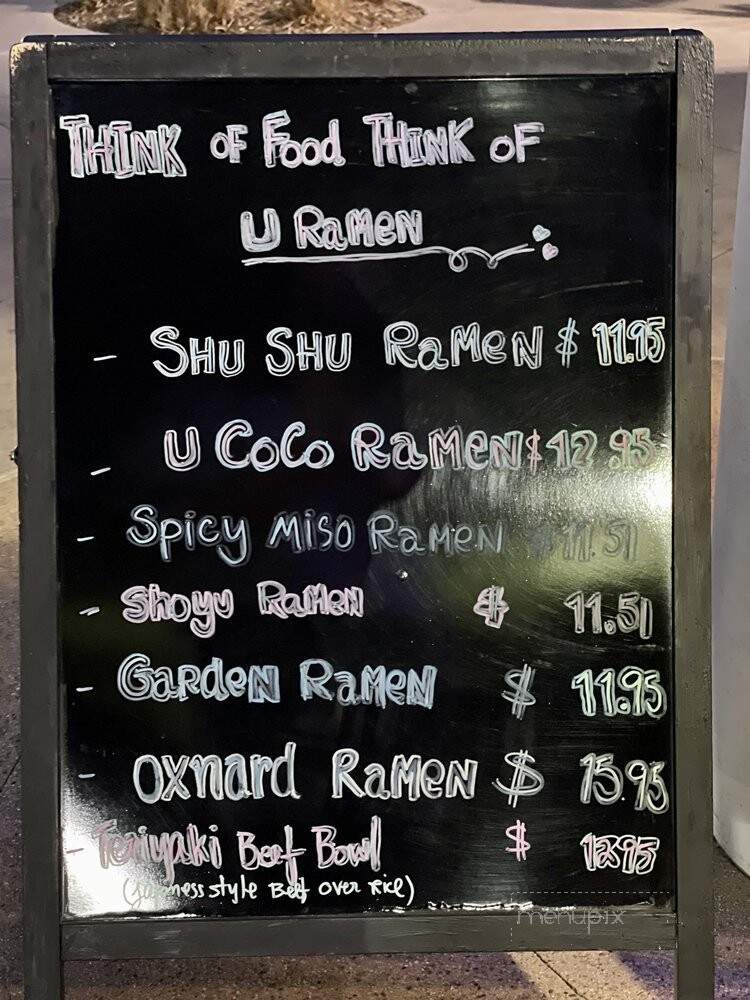 THINK OF Food THINK OF
U RAMEN
- SHU SHU RAMEN $ 11.95
- U CoCo RAMEN $ 12.95
- Spicy Miso RAMEN $ 11.51
- Shoyu RAMEN $ 11.51
- GARDEN RAMEN $ 11.95
- Oxnard RAMEN $ 15.95
- Teriyaki Beef Bowl $
style Beef Over Rice)
menupix